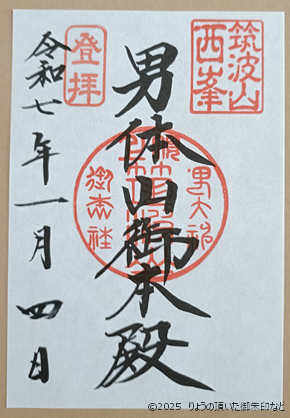 筑波山
西峯
登拝
男体山御本殿
令和七年一月四日
©2025 りょうの頂いた御朱印など